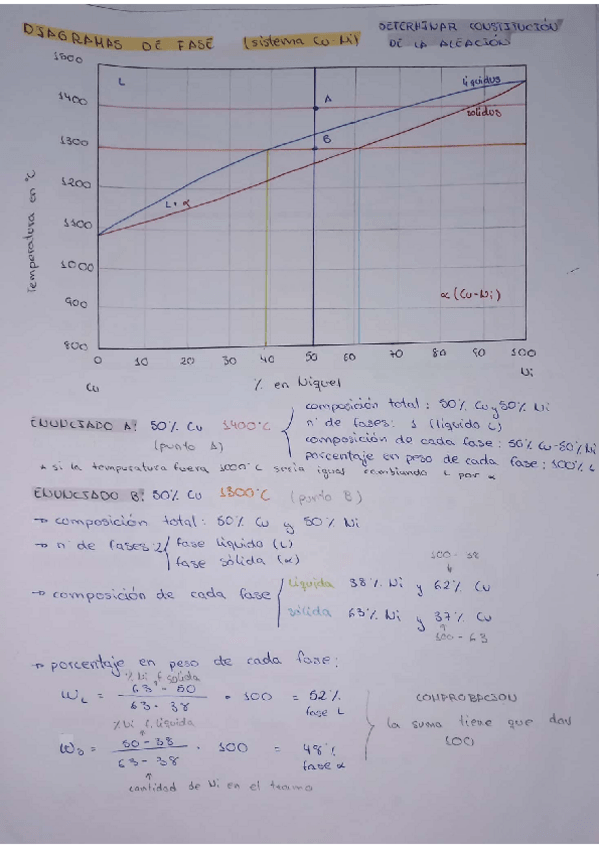 DIAGRAMAS DE FASE (sistema Cu-Ni) DETERMINAR CONSTITUCIÓN
DE LA ALEACIÓN
1500
1400
1300
1200
1100
1000
900
800
Temperatura en °C
L
A
B
líquidus
sólidus
L+α
α (Cu-Ni)
0 10 20 30 40 50 60 70 80 90 100
Cu % en Níquel Ni
ENUNCIADO A: 50% Cu 1400°C
(punto A)
composición total: 50% Cu y 50% Ni
nº de fases: 1 (líquida L)
composición de cada fase: 50% Cu-50% Ni
porcentaje en peso de cada fase: 100% L
* si la temperatura fuera 1000°C sería igual cambiando L por α
ENUNCIADO B: 50% Cu 1300°C (punto B)
→ composición total: 50% Cu y 50% Ni
→ nº de fases: 2 fase líquida (L)
fase sólida (α)
100-38
→ composición de cada fase líquida 38% Ni y 62% Cu
sólida 63% Ni y 37% Cu
100-63
→ porcentaje en peso de cada fase:
% Ni f. sólida
WL = 63-50 / 63-38 · 100 = 52% fase L
% Ni f. líquida
WS = 50-38 / 63-38 · 100 = 48% fase α
cantidad de Ni en el tramo
COMPROBACIÓN
la suma tiene que dar
100